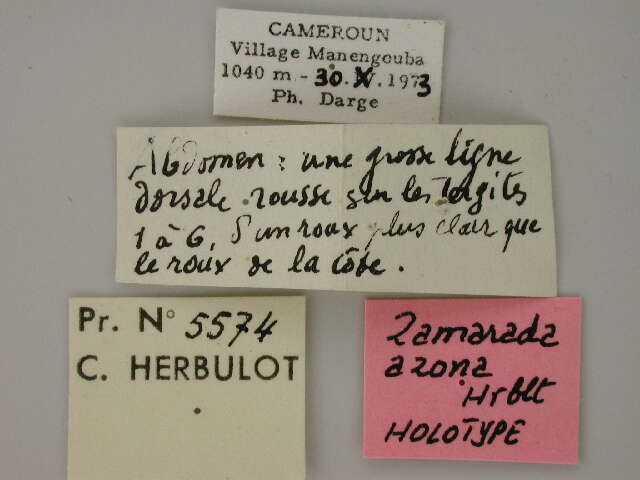 CAMEROUN
Village Manengouba
1040 m - 30. X. 1973
Ph. Darge
Abdomen : une grosse ligne
dorsale rousse sur les tergites
1 à 6, d'un roux plus clair que
le roux de la côte.
Pr. N° 5574
C. HERBULOT
Zamarada
azona
Hrblt
HOLOTYPE